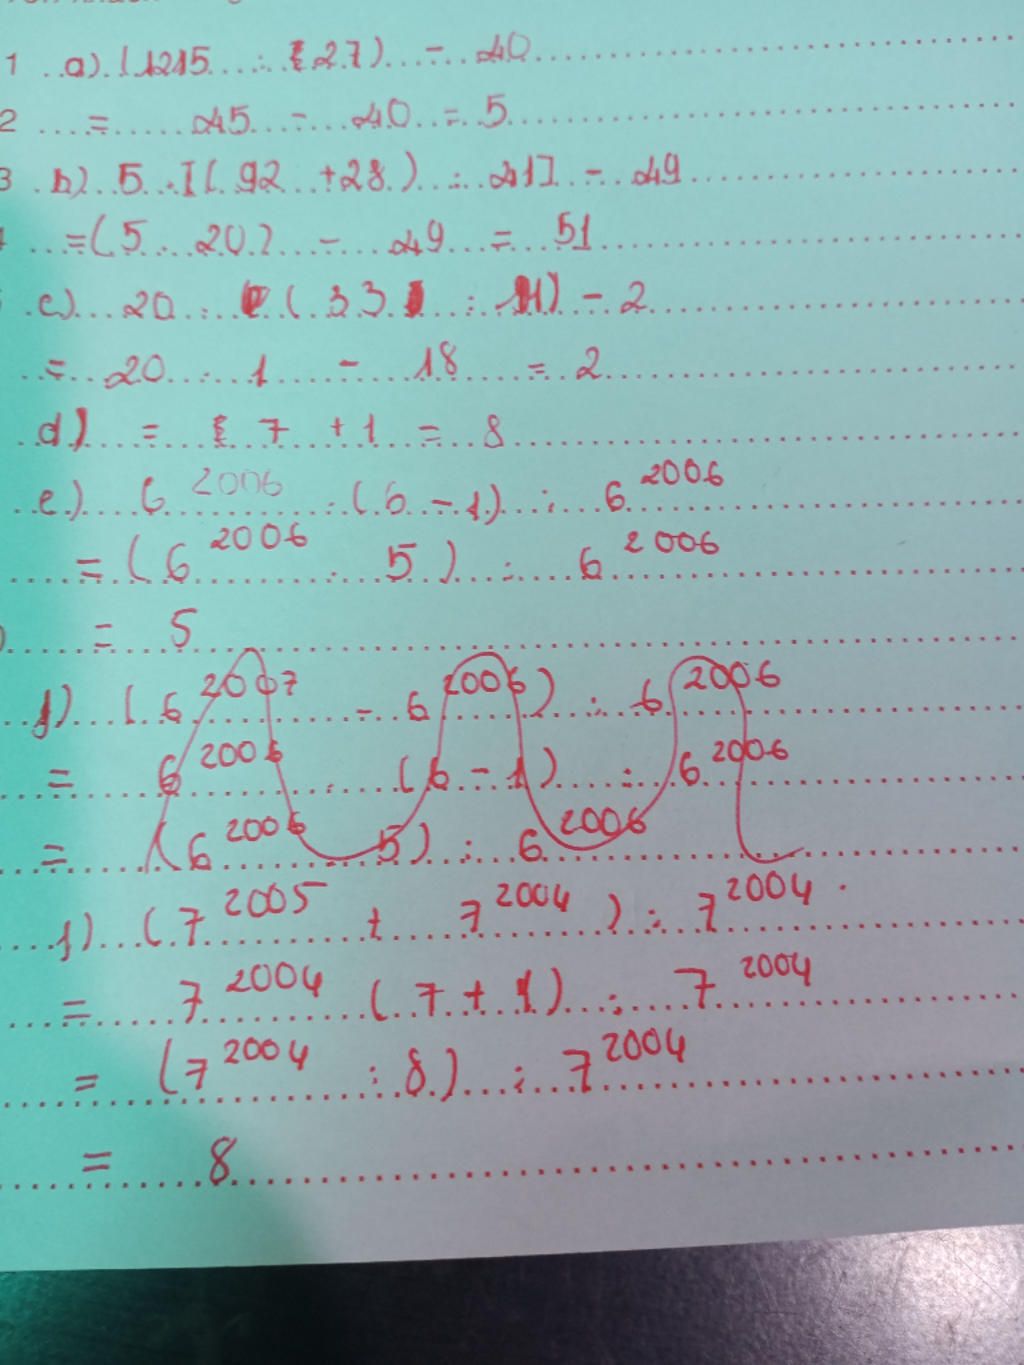 1 a) (1215 : 27) - 40
2 = 45 - 40 = 5
3 b) 5 . [( 92 + 28 ) : 41] - 49
= ( 5 . 20 ) - 49 = 51
c) 20 . ( 33 : 11) - 2
= 20 . 1 - 18 = 2
d) = 7 + 1 = 8
e) 6^2006 . (6 - 1) : 6^2006
= (6^2006 . 5) : 6^2006
= 5
f) (6^2007 - 6^2006) : 6^2006
= 6^2006 . (6 - 1) : 6^2006
= (6^2006 5) : 6^2006
f) (7^2005 + 7^2004) : 7^2004
= 7^2004 (7 + 1) : 7^2004
= (7^2004 : 8) : 7^2004
= 8